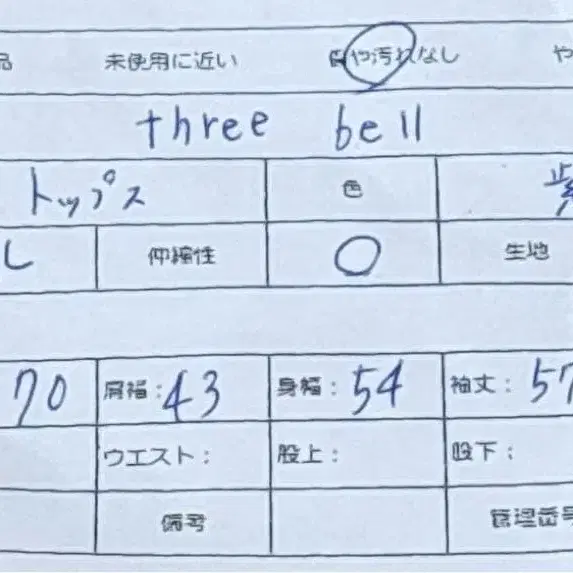 品 未使用に近い 傷や汚れなし や
three bell
トップス 色 紫
し 伸縮性 〇 生地
70 肩幅：43 身幅：54 袖丈：57
ウエスト： 股上： 股下：
備考 管理番号